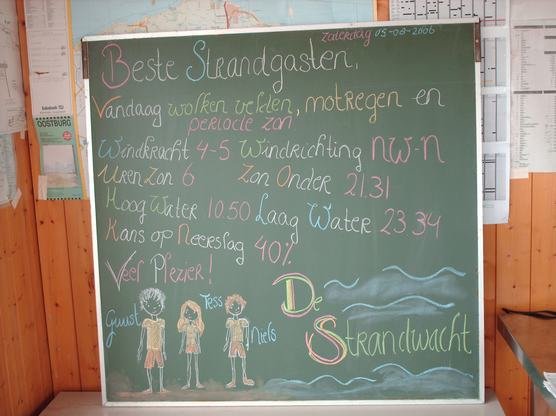 Zaterdag 05-08-2006
Beste Strandgasten,
Vandaag wolken velden, motregen en
periode zon
Windkracht 4-5 Windrichting NW-N
Uren Zon 6 Zon Onder 21.31
Hoog Water 10.50 Laag Water 23.34
Kans op Neerslag 40%
Veel Plezier!
Guust Tess Niels
De
Strandwacht
OOSTBURG